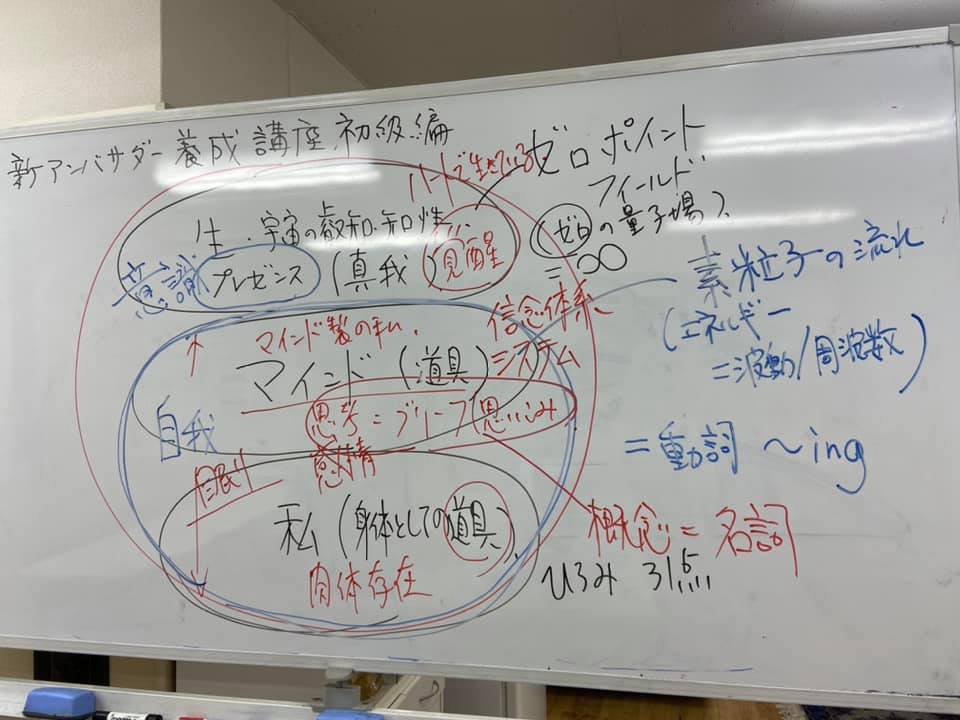 新アンバサダー養成講座 初級編
ハートで生きている
ゼロポイント
フィールド
(ゼロの量子場)
=∞
生・宇宙の叡知・知性
意識 プレゼンス (真我) 覚醒
素粒子の流れ
(エネルギー
=波動/周波数)
=動詞 ~ing
マインド製の私
信念体系
システム
マインド (道具)
思考=ブリーフ 思い込み
自我
感情
私 (身体としての道具)
肉体存在
概念=名詞
ひろみ